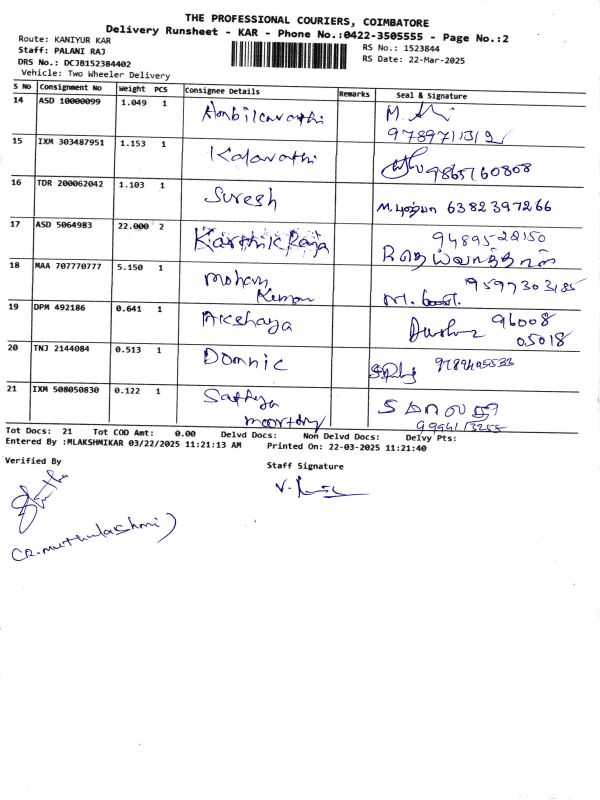 THE PROFESSIONAL COURIERS, COIMBATORE
Delivery Runsheet - KAR - Phone No.:0422-3505555 - Page No.:2
Route: KANIYUR KAR
RS No.: 1523844
Staff: PALANI RAJ
RS Date: 22-Mar-2025
DRS No.: DCJB152384402
Vehicle: Two Wheeler Delivery
S No Consignment No Weight PCS Consignee Details Remarks Seal & Signature
14 ASD 10000099 1.049 1 9789711312
15 IXM 303487951 1.153 1 Kalavathi 9865760808
16 TDR 200062042 1.103 1 Suresh 6382397266
17 ASD 5064983 22.000 2 Karthik Raja
18 MAA 707770777 5.150 1 Mohan Kumar 9597303185
19 DPM 492186 0.641 1 Akshaya 96008 05018
20 TNJ 2144084 0.513 1 Domnic
21 IXM 508050830 0.122 1 Sathya moorthy 9994113255
Tot Docs: 21 Tot COD Amt: 0.00 Delvd Docs: Non Delvd Docs: Delvy Pts:
Entered By :MLAKSHMIKAR 03/22/2025 11:21:13 AM Printed On: 22-03-2025 11:21:40
Verified By
Staff Signature
(R.muthulakshmi)